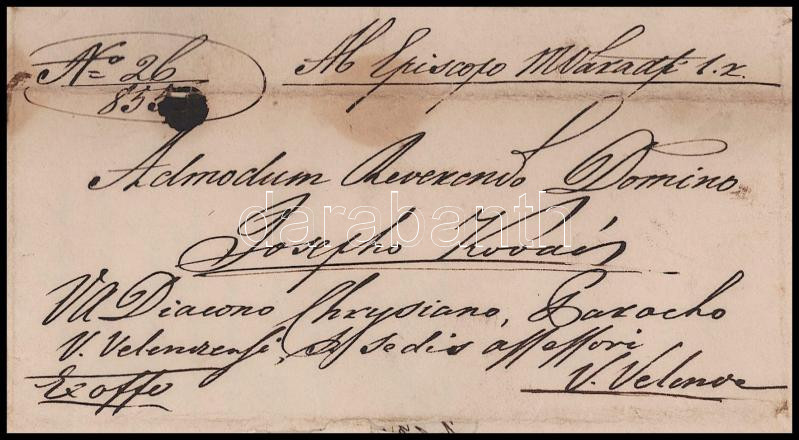 No 26
855
Ab Episcopo MVaradi l. r.
Admodum Reverendo Domino
Josepho
VA Diacono Chrysiano, Parocho
V. Velenczensi, S. Sedis assessori
Ex offo
V. Velencze
darabanth